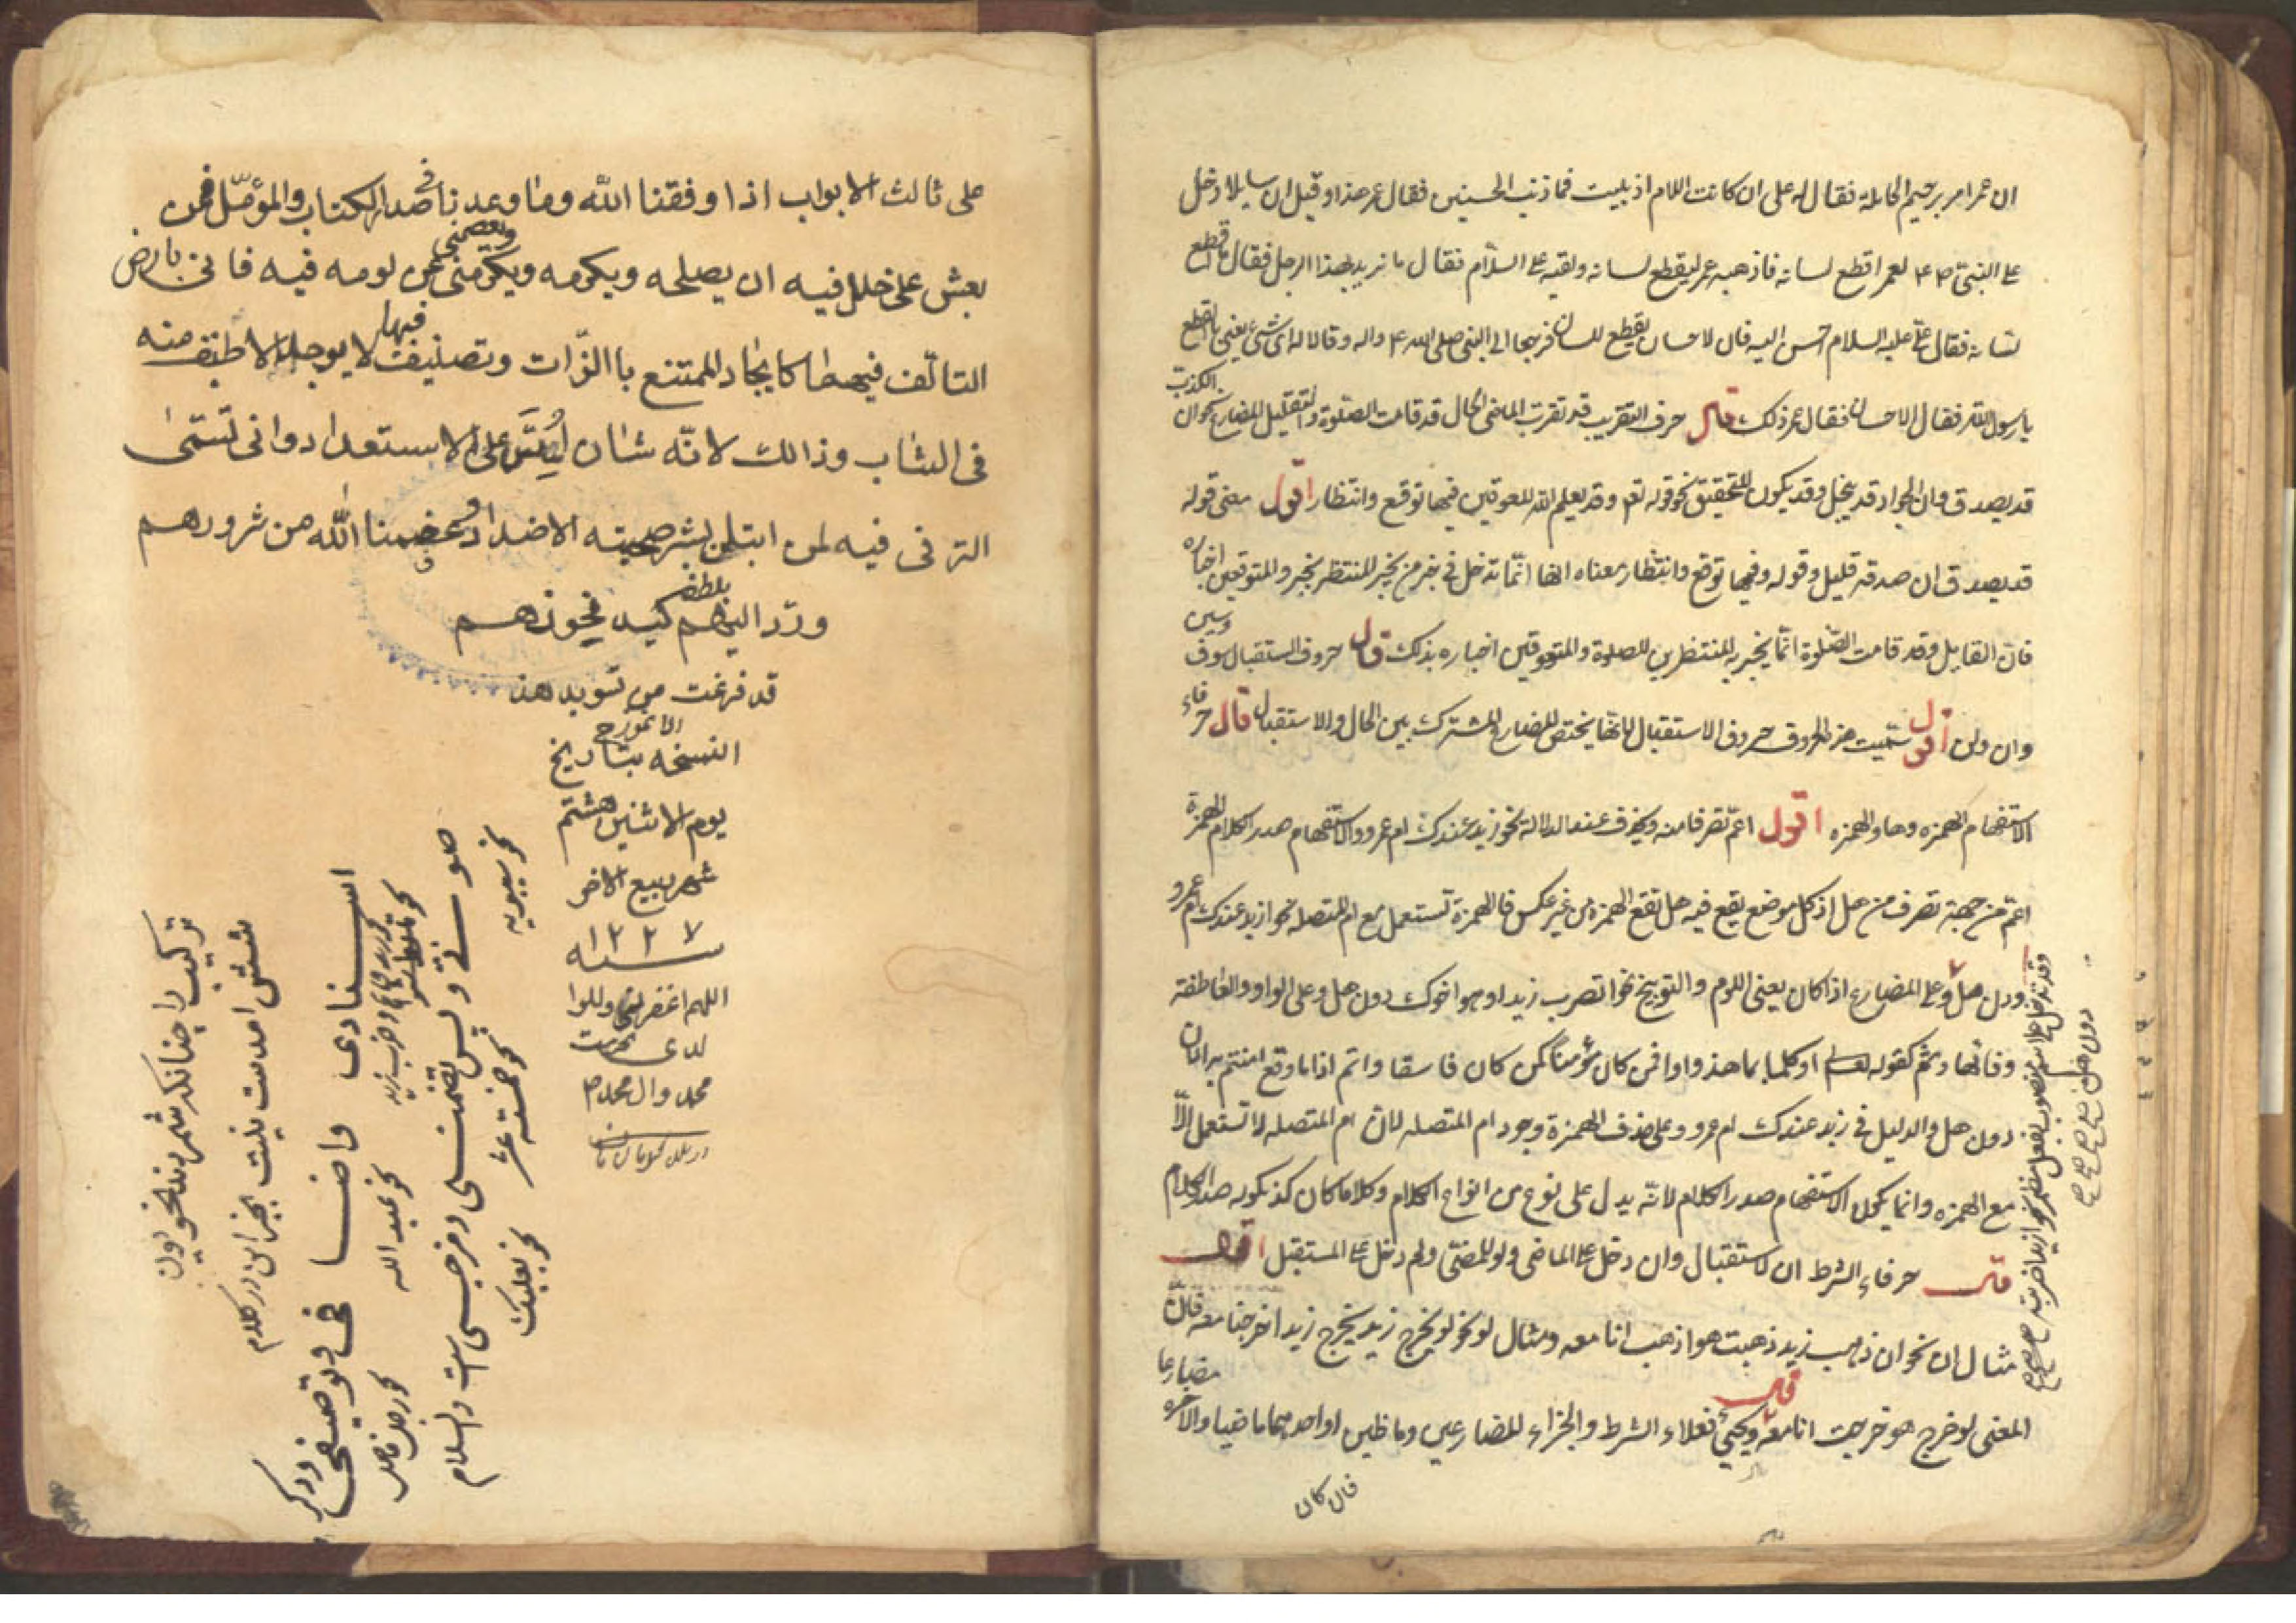 ان عمر امر برجم الحاملة فقال له على ان كانت اللام اذ بليت فما ذنب الجنين فقال عمر هذا وقيل ان سايلا دخل
على النبي ص م لعمر اقطع لسانه فاذهبه عمر ليقطع لسانه ولقيه على السلام فقال ما تريد بهذا الرجل فقال اقطع
لسانه فقال على عليه السلام احسن اليه فان الاحسان يقطع اللسان فرجعا الى النبي صلى الله واله وقالا له اى شئ يعنى بالقطع
يا رسول الله فقال الاحسان فقال عمر ذلك قال حرف التقريب قد تقرب الماضى الحال قد قامت الصلوة والتقليل المضارع نحو ان الكذب
قد يصدق وان الجواد قد يبخل وقد يكون للتحقيق نحو قوله تعم وقد يعلم الله المعوقين فيها توقع وانتظار اقول معنى قوله
قد يصدق ان صدقه قليل وقوله وفيها توقع وانتظار معناه انها انما تدخل فى خبر من يخبر المنتظر بخبر والمتوقعين اخباره
فان القايل وقد قامت الصلوة انما يخبر به المنتظرين للصلوة والمتوقعين اخباره بذلك قال حروف الاستقبال سوف وسين
وان ولن اقول سميت هذه الحروف حروف الاستقبال لانها يختص المضارع المشترك بين الحال والاستقبال قال حرفاء
الاستفهام الهمزه وها والهمزه اقول اعم تصرفا منه ويحذف عند الدلالة نحو زيد عندك ام عمرو والاستفهام صدر الكلام الهمزة
اعم من جهة تصرف من هل اذ كل موضع يقع فيه هل تقع الهمزه من غير عكس فالهمزة تستعمل مع ام المتصله نحو ازيد عندك ام عمرو
دون هل وعلى المضارع اذا كان يعنى اللوم والتوبيخ نحو اتضرب زيدا وهو اخوك دون هل وعلى الواو العاطفة
وفائها وثم كقوله تعم او كلما عاهدوا وافمن كان مؤمنا كمن كان فاسقا واثم اذا ما وقع امنتم به الان
دون هل والدليل فى زيد عندك ام عمرو وعلى حذف الهمزة وجود ام المتصله لان ام المتصله لا تستعمل الا
مع الهمزه وانما يكون الاستفهام صدر الكلام لانه يدل على نوع من انواع الكلام وكلاما كان كذ يكون صدر الكلام
قال حرفاء الشرط ان للاستقبال وان دخل على الماضى ولو للمضى ولم دخل على المستقبل اقول
مثال ان نحو ان ذهب زيد ذهبت هو اذهب انا معه ومثال لو نحو لو يخرج زيد يخرج زيد اخرجنا معه فان
المعنى لو خرج هو خرجت انا معه قال ويجئ فعلاء الشرط والجزاء المضارعين وماظيين او احدهما ماضيا والاخر مضارعا
فان كان
دون هل
على ثالث الابواب اذا وفقنا الله وما وعدنا فى صدر الكتاب والمؤمل فمن
يعش على خلل فيه ان يصلحه ويكرمه ويكرمنى ويعصمنى عن لومه فيه فانى بارض
التالف فيها كايجاد الممتنع با الذات وتصنيف فيها لا يوجد الا طيف منه
فى الشاب وذالك لانه شان اسس على الاستعداد وانى تتمى
الترقى فيه لمن ابتلى بشر صحبته الاضداد وعصمنا الله من شرورهم
ورد اليهم بلطفه كيد نحورهم
قد فرغت من تسويد هذ
الانموزج
النسخه بتاريخ
يوم الاثنين هشتم
شهر ربيع الاخر
سنه ١٢٢٧
اللهم اغفر لى ولوا
لدى بحرمت
محمد وال محمد ص
تركيب را چنانكه شمردند نحويون
شش امدست نيست بجز اين در كلام
اسنادى واضا فى وتوصيفى ودكر
نحو عبد الله
نحو رجل فاضل
صوتى وپس تضمنى ومزجى است والسلام
نحو سيبويه
نحو خمسة عشر
نحو بعلبك